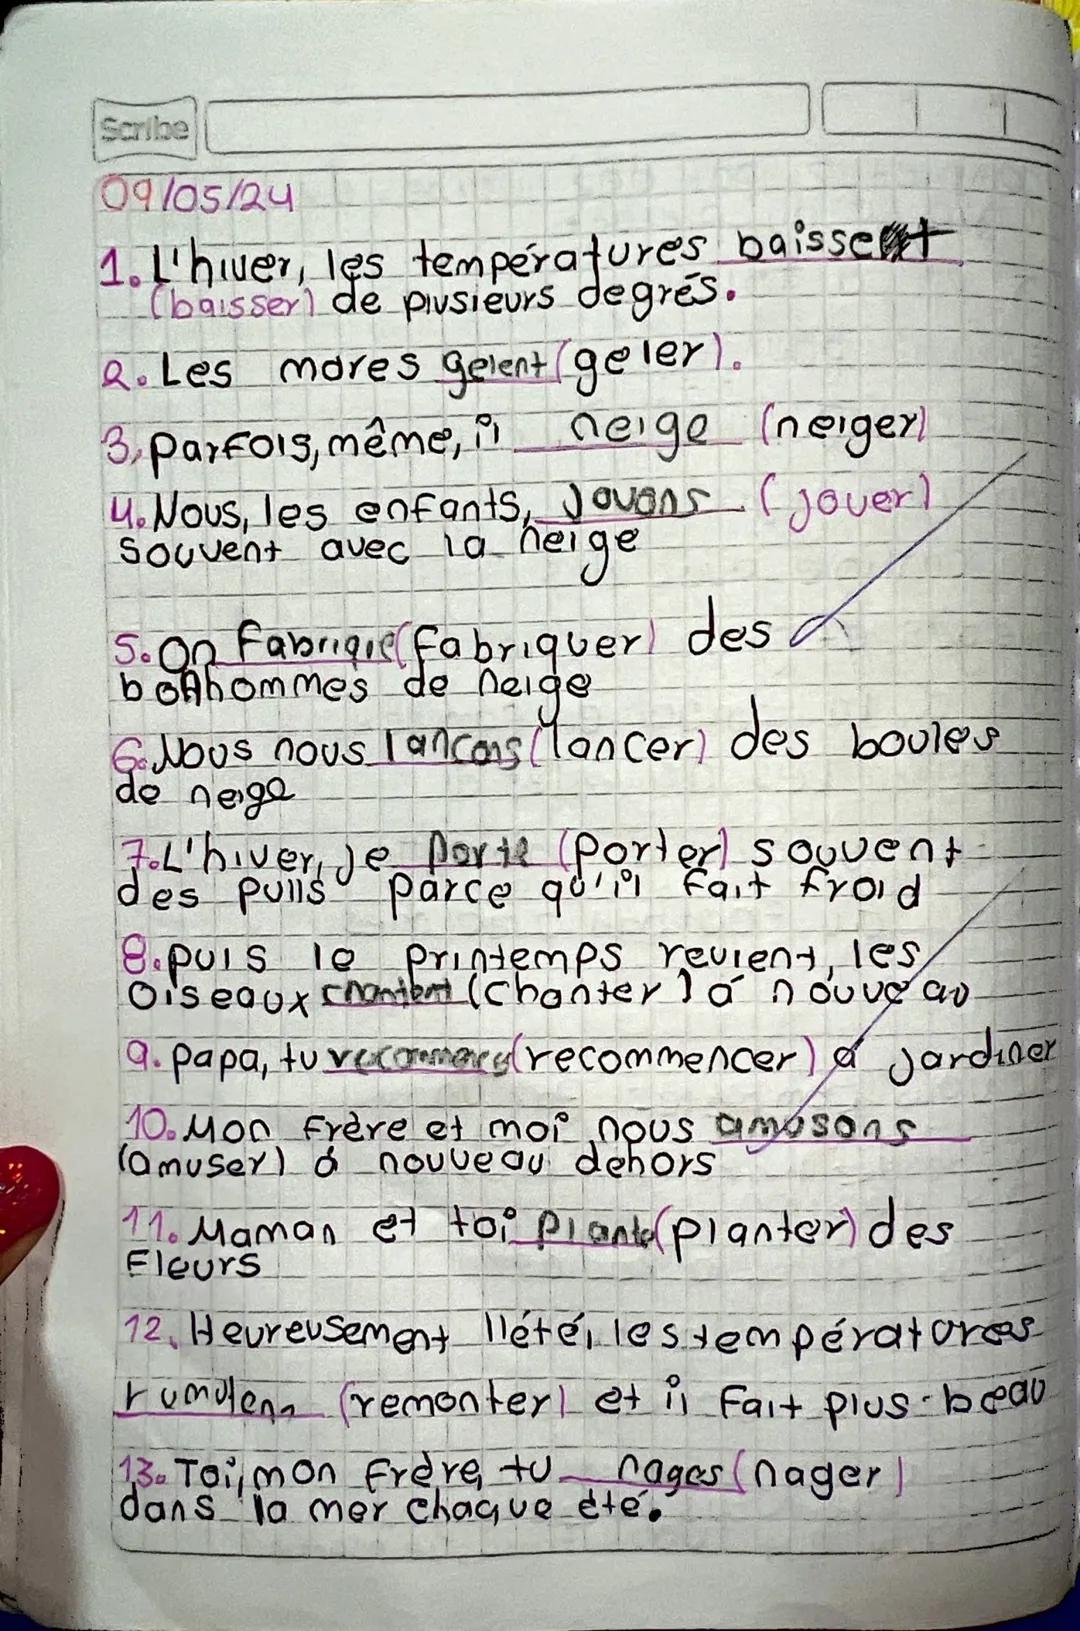 Scribe
09/05/24
1. L'hiver, les températures baissent
(baisser) de plusieurs degrés.
2. Les mares gelent (geler).
3. parfois, même, il neige (neiger)
4. Nous, les enfants, jouons (jouer)
souvent avec la neige
5. On Fabrique (fabriquer) des
bonhommes de neige
6. Nous nous lancons (lancer) des boules
de neige
7. L'hiver, je porte (porter) souvent
des pulls parce qu'il fait froid
8. puis le printemps revient, les
Oiseaux chantent (chanter) á nouveau
9. papa, tu (recommencer) á jardiner
10. Mon Frère et moi nous amusons
(amuser) á nouveau dehors
11. Maman et toi (planter) des
Fleurs
12. Heureusement l'été, les températures
(remonter) et il Fait plus beau
13. Toi, mon Frère, tu nages (nager)
dans la mer chaque été.